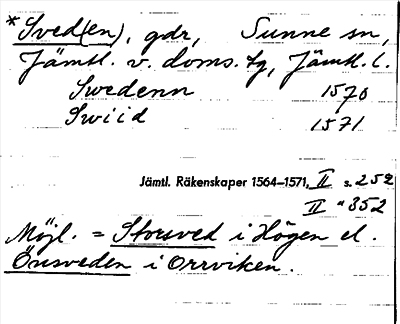 * Sved(en), gdr, Sunne sn,
Jämtl. v. doms. tg, Jämtl. l.
Swedenn 1570
Swiid 1571
Jämtl. Räkenskaper 1564–1571, II s. 252
II " 352
Möjl. = Storsved i Högen el.
Önsveden i Orrviken.